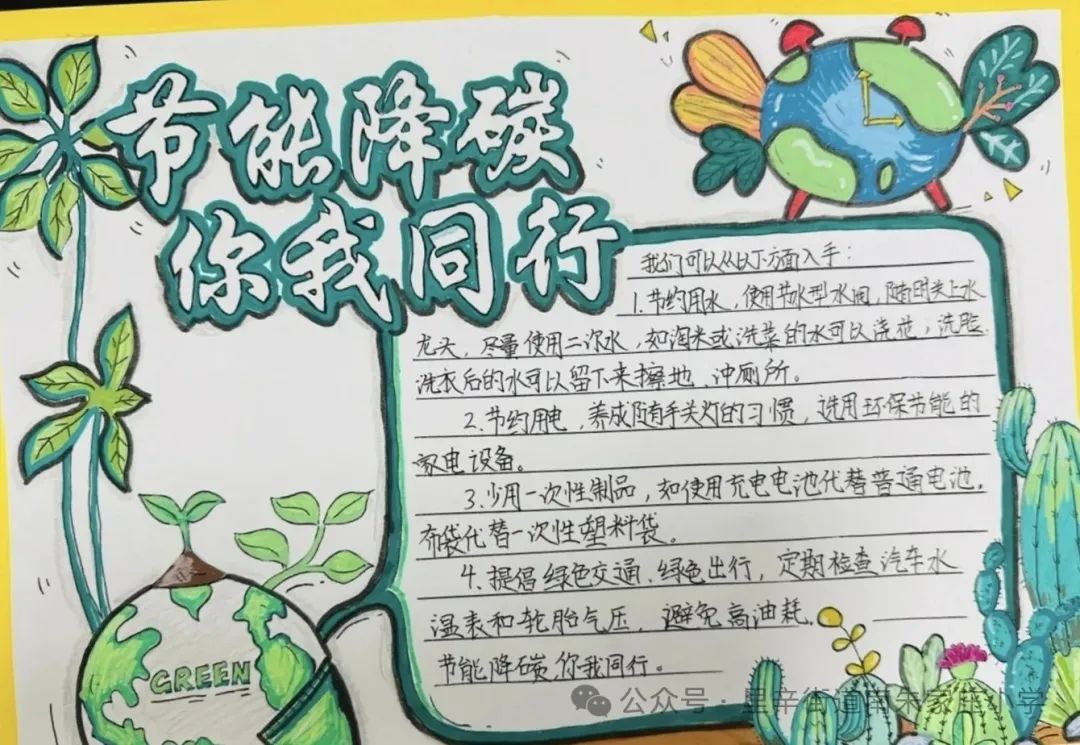 节能降碳
你我同行
我们可以从以下方面入手：
1.节约用水，使用节水型水阀，随时关上水
龙头，尽量使用二次水，如淘米或洗菜的水可以浇花，洗脸、
洗衣后的水可以留下来擦地、冲厕所。
2.节约用电，养成随手关灯的习惯，选用环保节能的
家电设备。
3.少用一次性制品，如使用充电电池代替普通电池，
布袋代替一次性塑料袋。
4.提倡绿色交通、绿色出行，定期检查汽车水
温表和轮胎气压，避免高油耗。
节能降碳，你我同行。
GREEN
公众号·里辛街道南朱家庄小学